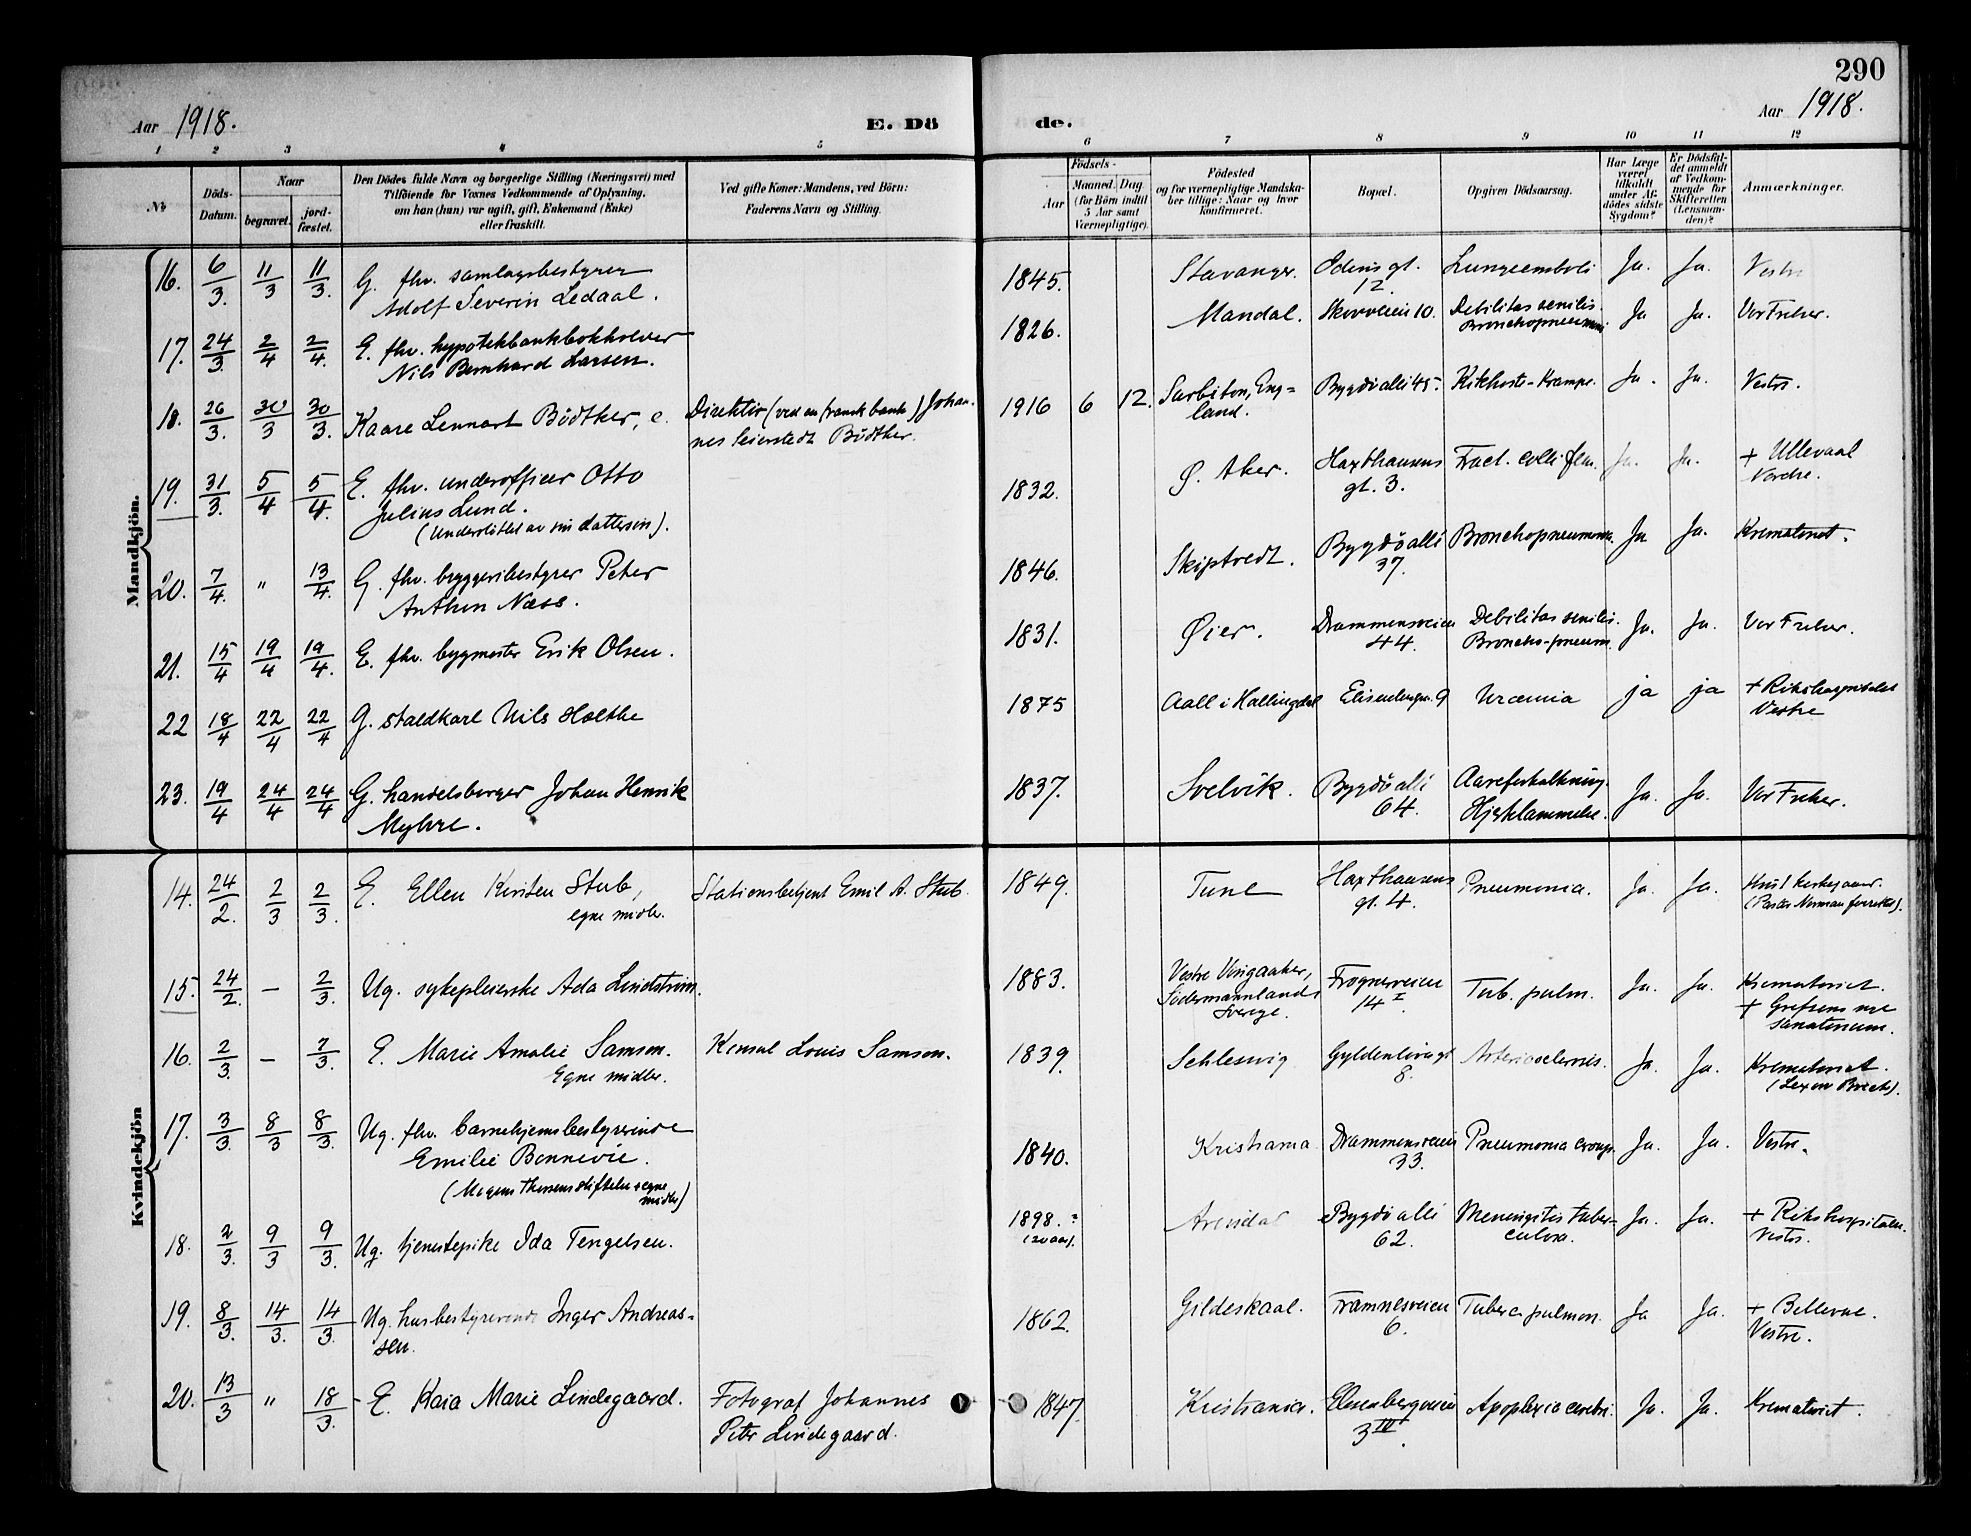 290
Aar 1918.
E. Dö
de.
Aar 1918.
1 2 3 4 5 6 7 8 9 10 11 12
No
Döds-
Datum.
Naar
begravet.
jord-
fæstet.
Den Dödes fulde Navn og borgerlige Stilling (Næringsvei) med
Tilföiende for Voxnes Vedkommende af Oplysning,
om han (hun) var ugift, gift, Enkemand (Enke)
eller fraskilt.
Ved gifte Koner: Mandens, ved Börn:
Faderens Navn og Stilling.
Födsels-
Aar
Maaned. Dag.
(for Börn indtil
5 Aar samt
Værnepligtige).
Födested
og for værnepligtige Mandska-
ber tillige: Naar og hvor
Konfirmeret.
Bopæl.
Opgiven Dödsaarsag.
Har Læge
været
tilkaldt
under Af-
dödes sidste
Sygdom?
Er Dödsfal-
det anmeldt
af Vedkom-
mende for
Skifteretten
(Lensman-
den)?
Anmærkninger.
Mandkjön.
16. 6/3. 11/3 11/3. G. fhv. samlagsbestyrer
Adolf Severin Ledaal.
1845. Stavanger. Odins gt.
12. Lungeemboli Ja. Ja. Vestre
17. 24/3. 2/4 2/4. E. fhv. hypotekbankbokholder
Nils Bernhard Larsen.
1826. Mandal. Skovveien 10. Debilitas senilis.
Bronchopneumoni Ja Ja. Vor Frelser.
18. 26/3. 30/3 30/3. Kaare Lennart Bödtker, e. Direktör (ved en fransk bank) Johan-
nes Seierstedt Bödtker.
1916 6 12. Surbiton, Eng-
land. Bygdö allé 45. Kikhoste-Krampe. Ja. Ja. Vestre.
19. 31/3. 5/4 5/4. E. fhv. underofficer Otto
Julius Lund.
(Understöttet av sin dattersön).
1832. Ö. Aker. Haxthausens
gt. 3. Fract. colli fem. Ja. Ja. + Ullevaal
Nordre.
20. 7/4. " 13/4. G. fhv. bryggeribestyrer Peter
Anthon Næss.
1846. Skiptvedt. Bygdö allé
37. Bronchopneumoni. Ja Ja. Krematoriet.
21. 15/4 19/4 19/4. E. fhv. bygmester Erik Olsen.
1831. Öier. Drammensveien
44. Debilitas senilis.
Broncho-pneum. Ja. Ja. Vor Frelser.
22 18/4 22/4 22/4 G. staldkarl Nils Holthe
1875 Aall i Hallingdal Elisenbergv. 9 Uræmia ja ja + Rikshospitalet
Vestre
23. 19/4 24/4 24/4 G. handelsborger Johan Henrik
Myhre.
1837. Svelvik. Bygdö allé
64. Aareforkalkning.
Hjertelammelse. Ja. Ja. Vor Frelser.
Kvindekjön
14. 24/2. 2/3 2/3. E. Ellen Kirsten Stub,
egne midler. Stationsbetjent Emil A. Stub.
1849. Tune Haxthausens
gt. 4. Pneumonia. Ja. Ja.
15. 24/2. - 2/3. Ug. sykepleierske Ada Lindström.
1883. Vestre Vingaaker,
Södermannland
Sverige. Frognerveien
14 I. Tub. pulm. Ja. Ja. Krematoriet.
+ Grefsens nye
sanatorium.
16. 2/3. - 7/3. E. Marie Amalie Samson.
Egne midler. Konsul Louis Samson.
1839. Schleswig Gyldenlövsgt
8. Arteriosclerosis. Ja. Ja. Krematoriet.
17. 3/3. 8/3 8/3. Ug. fhv. barnehjemsbestyrerinde
Emilie Bonnevie.
(Mogens Thorsens stiftelse + egne
midler)
1840. Kristiania Drammensveien
33. Pneumonia croup. Ja. Ja. Vestre.
18. 2/3. 9/3 9/3. Ug. tjenestepike Ida Tengelsen.
1898.
(20 aar). Arendal Bygdö allé
62. Meningitis tuber-
culosa. Ja. Ja. + Rikshospitalet.
Vestre.
19. 8/3. 14/3. 14/3. Ug. husbestyrerinde Inger Andreas-
sen.
1862. Gildeskaal. Framnesveien
6. Tuberc. pulmon. Ja Ja. + Bellevue.
Vestre.
20. 13/3 " 18/3. E. Kaia Marie Lindegaard. Fotograf Johannes
Petr Lindegaard.
1847. Kristiania. Elisenbergveien
3 IV. Apoplexia cerebri. Ja. Ja. Krematoriet.